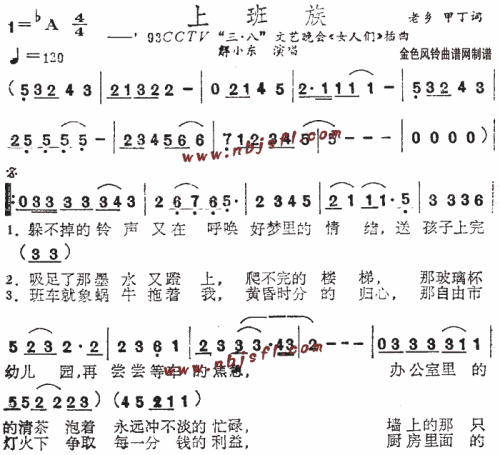 上 班 族
1=♭A 4/4
老乡 甲丁词
——'93CCTV“三·八”文艺晚会《女人们》插曲
♩=120
解小东 演唱
金色风铃曲谱网制谱
(5 3 2 4 3 | 2 1 3 2 2 - | 0 2 1 4 5 | 2·1 1 1 1 - | 5 3 2 4 3
2 5 5 5 5 - | 2 3 4 5 6 6 | 7 1 2 3 4 5 | 5 - - - | 0 0 0 0 )
www.nbjsfl.com
0 3 3 3 3 3 4 3 | 2 6 7 6 5· | 2 3 4 5 | 2 1 1 1·5 | 3 3 3 6
1. 躲不掉的 铃 声 又 在 呼唤 好梦里的 情 绪, 送 孩子上完
( 3 3 )
2. 吸足了那 墨 水 又 蹬 上, 爬不完的 楼 梯, 那玻璃杯
3. 班车就象 蜗 牛 拖 着 我, 黄昏时分 的 归心, 那自由市
5 2 3 2·2 | 2 3 6 1 | 2 3 3·4 3 | 2 - - - | 0 3 3 3 3 1
www.nbjsfl.com
幼儿 园,再 尝尝等车 的焦急, 办公室里的
5 5 2 2 2 3 ) ( 4 5 2 1 1 )
的清茶 泡着 永远冲不淡的忙碌, 墙上的那 只
灯火下 争取 每一分 钱的利益, 厨房里面的